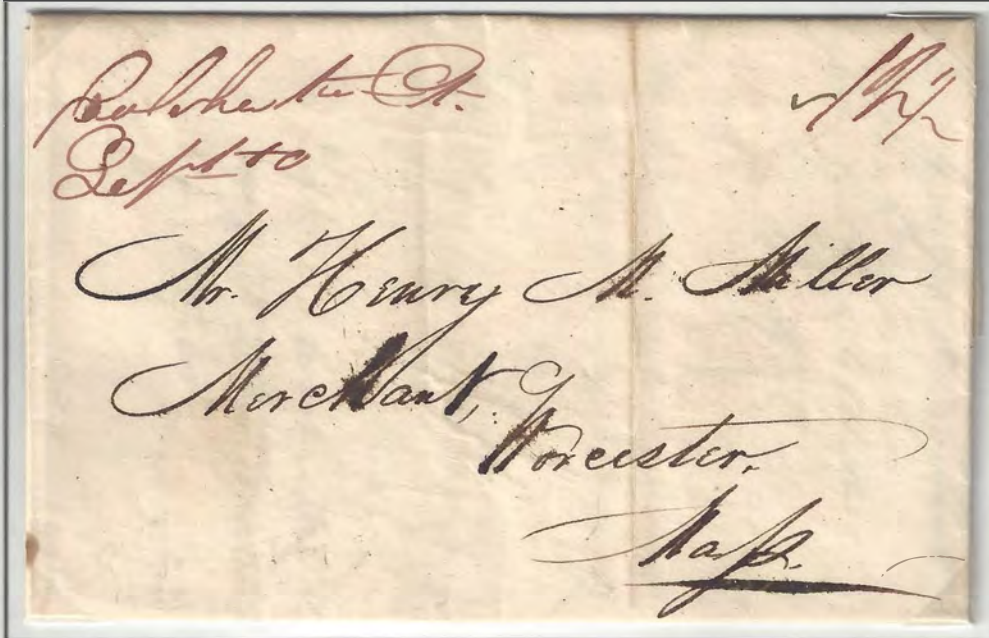 Colchester Ct.
Sept 10
Mr. Henry M. Miller
Merchant,
Worcester.
Mass.